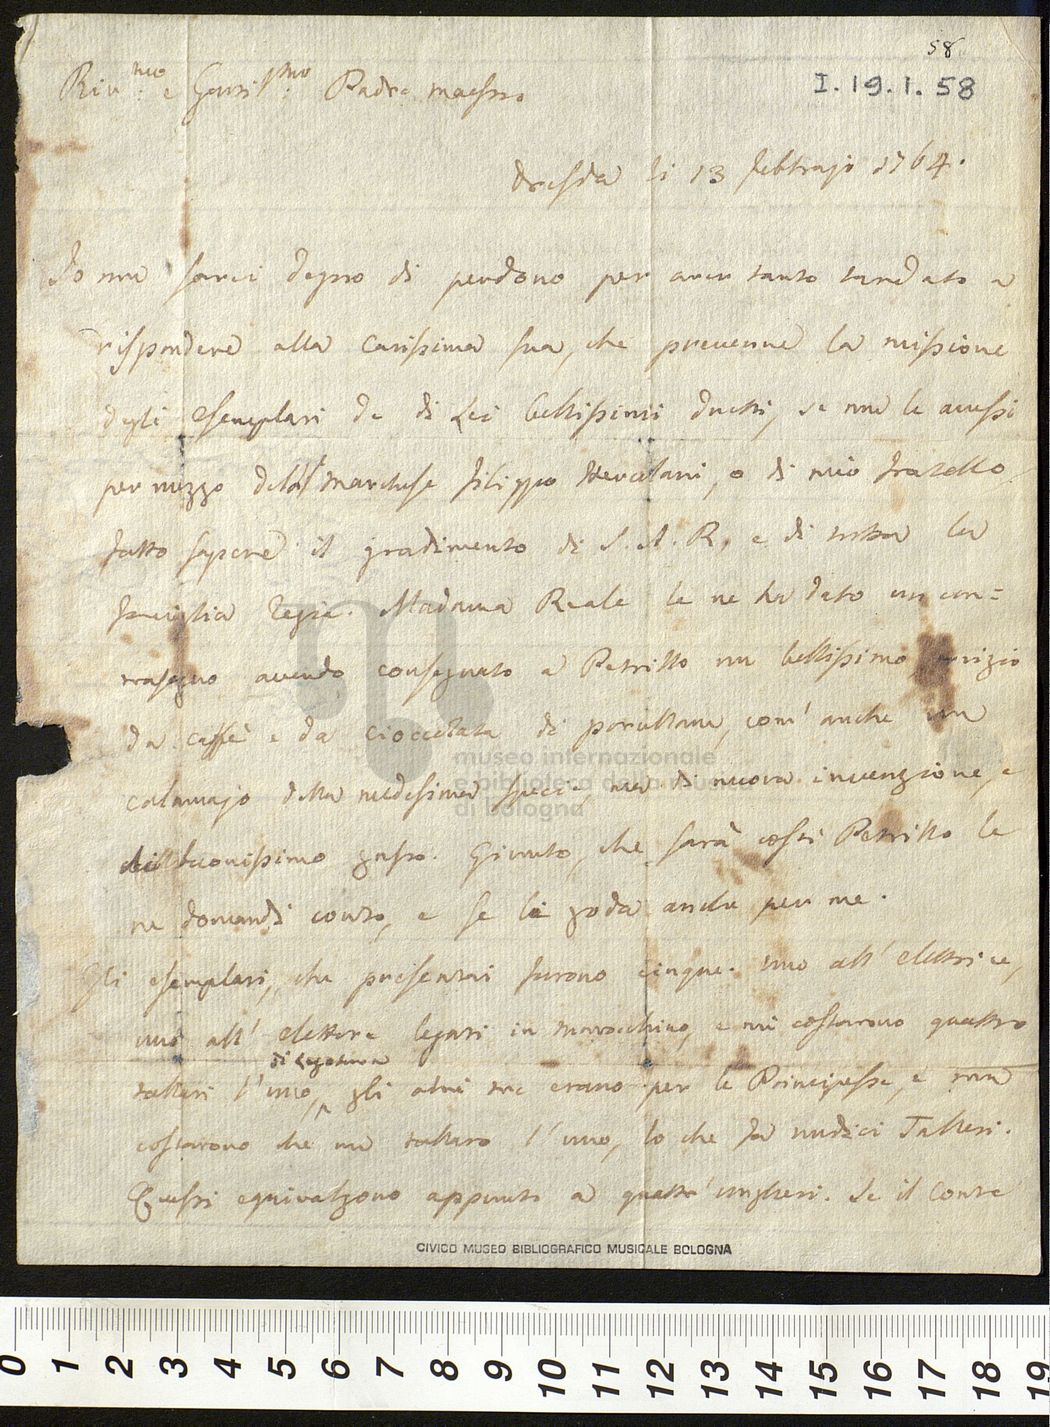 58
I. 19. 1. 58
Riv.mo e Gentilissmo: Padre maestro
Dresda li 13 febbrajo 1764.
Io non sarei degno di perdono per aver tanto tardato a
rispondere alla carissima sua, che prevenne la missione
degli esemplari de di Lei bellissimi duetti, se non le avessi
per mezzo del March.se Filippo Hercolani, o di mio fratello
fatto sapere il gradimento di S. A. R. e di tutta la
famiglia Regia. Madama Reale le ne ha dato un con=
trasegno avendo consegnato a Petrillo un bellissimo servizio
da caffè e da cioccolata di porcellana, com' anche un
calamajo della medesima specie, ma di nuova invenzione, e
di buonissimo gusto. Giunto, che sarà costì Petrillo le
ne domandi conto, e se le goda anche per me.
Gli esemplari, che presentai furono cinque. Uno all' elettrice,
uno all' elettore legati in marocchino, e mi costarono quattro
di legatura
talleri l'uno, gli altri tre erano per le Principesse, e non
costarono che un tallaro l'uno, lo che fa undici Talleri.
Questi equivalgono appunto a quattr' ungheri. Se il Conte
museo internazionale
e biblioteca della musica
di bologna
CIVICO MUSEO BIBLIOGRAFICO MUSICALE BOLOGNA
0 1 2 3 4 5 6 7 8 9 10 11 12 13 14 15 16 17 18 19